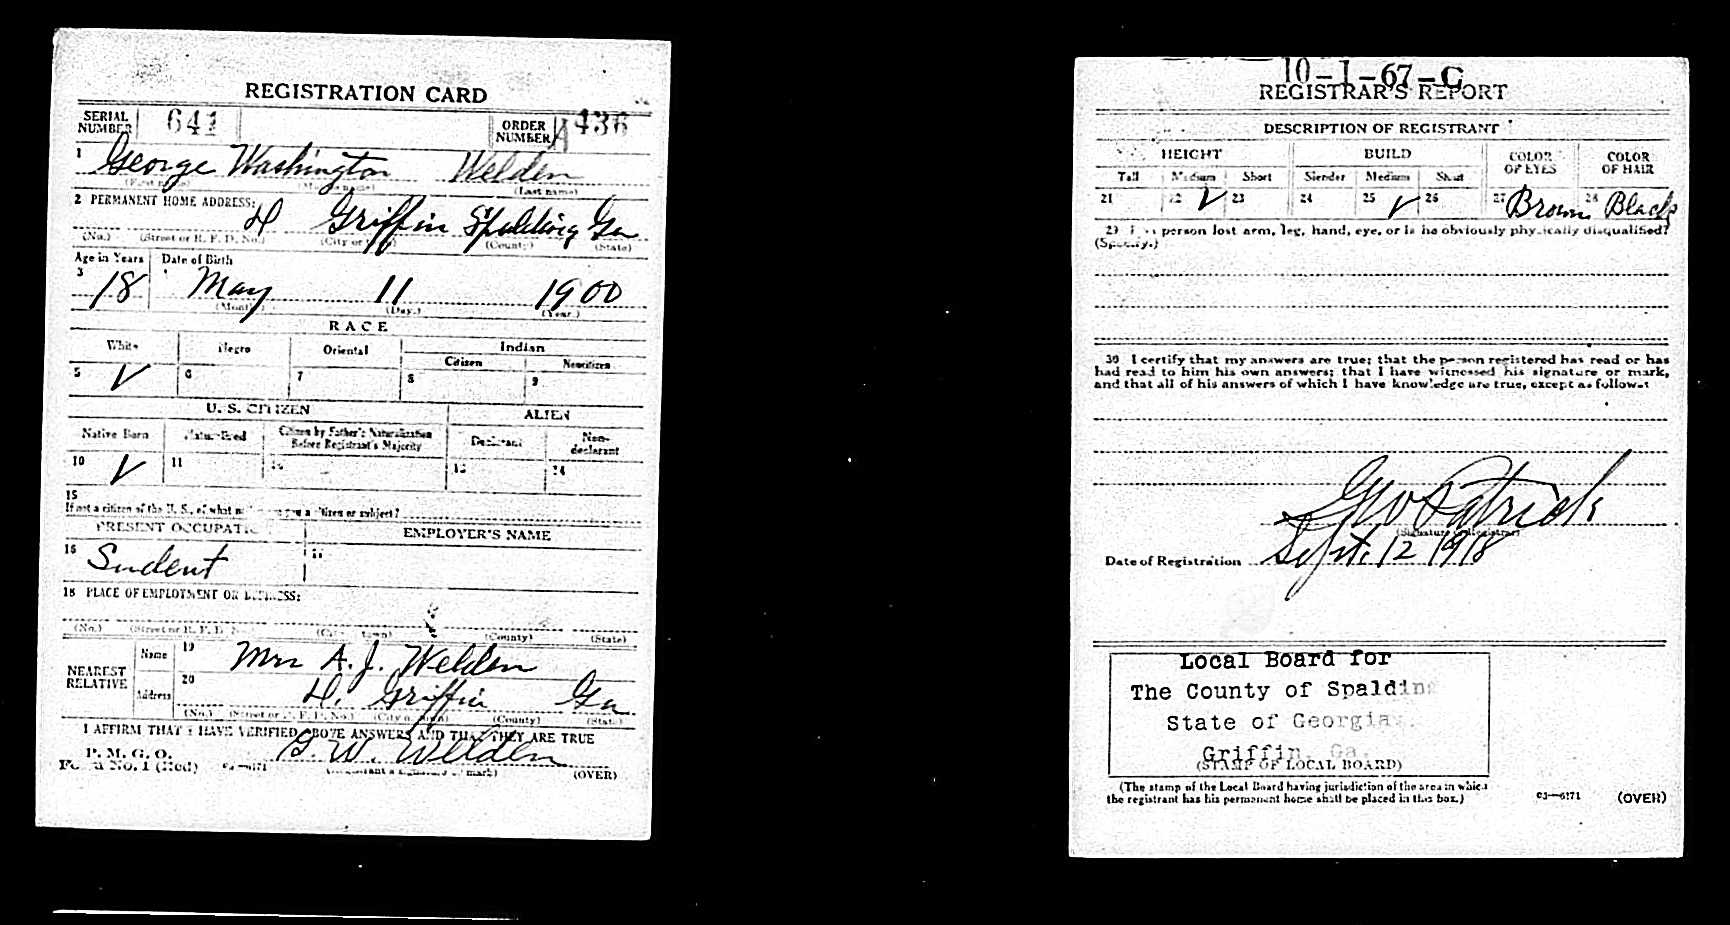 REGISTRATION CARD
SERIAL NUMBER 641 ORDER NUMBER A 436
1 George Washington Welden
(First name) (Middle name) (Last name)
2 PERMANENT HOME ADDRESS:
H Griffin Spalding Ga
(No.) (Street or R. F. D. No.) (City or town) (County) (State)
Age in Years Date of Birth
3 18 May 11 1900
(Month.) (Day.) (Year.)
RACE
White Negro Oriental Indian
Citizen Noncitizen
5 ✓ 6 7 8 9
U. S. CITIZEN ALIEN
Native Born Naturalized Citizen by Father's Naturalization Before Registrant's Majority Declarant Non-declarant
10 ✓ 11 12 13 14
15
If not a citizen of the U. S., of what nation are you a citizen or subject?
PRESENT OCCUPATION EMPLOYER'S NAME
16 Sudent 17
18 PLACE OF EMPLOYMENT OR BUSINESS:
(No.) (Street or R. F. D. No.) (City or town) (County) (State)
NEAREST RELATIVE
Name 19 Mrs A. J. Welden
Address 20 H. Griffin Ga
(No.) (Street or R. F. D. No.) (City or town) (County) (State)
I AFFIRM THAT I HAVE VERIFIED ABOVE ANSWERS AND THAT THEY ARE TRUE
P. M. G. O.
Form No. 1 (Red) 03—6171 G. W. Welden
(Registrant's signature or mark) (OVER)
10-1-67-C
REGISTRAR'S REPORT
DESCRIPTION OF REGISTRANT
HEIGHT BUILD COLOR OF EYES COLOR OF HAIR
Tall Medium Short Slender Medium Stout
21 22 ✓ 23 24 25 ✓ 26 27 Brown 28 Black
29 Has person lost arm, leg, hand, eye, or is he obviously physically disqualified?
(Specify.)
30 I certify that my answers are true; that the person registered has read or has
had read to him his own answers; that I have witnessed his signature or mark,
and that all of his answers of which I have knowledge are true, except as follows:
Geo Patrick
(Signature of Registrar)
Date of Registration Sept. 12 1918
Local Board for
The County of Spalding
State of Georgia
Griffin, Ga.
(STAMP OF LOCAL BOARD)
(The stamp of the Local Board having jurisdiction of the area in which
the registrant has his permanent home shall be placed in this box.)
03—6171 (OVER)